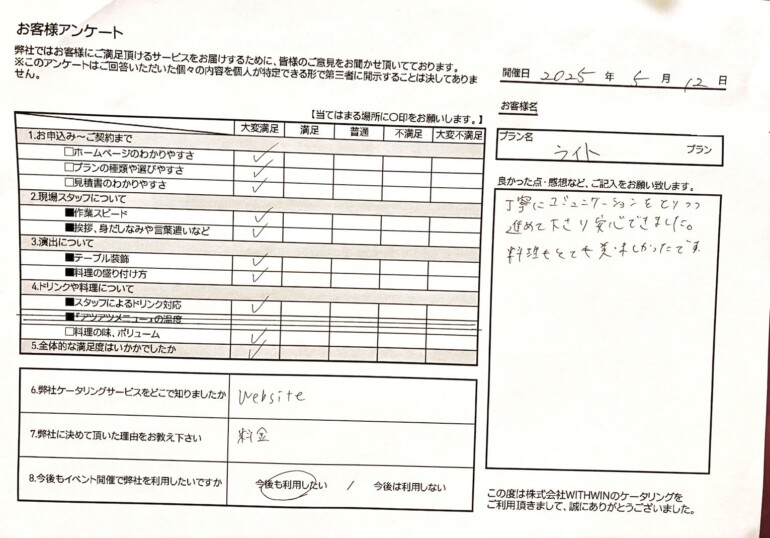 お客様アンケート
弊社ではお客様にご満足頂けるサービスをお届けするために、皆様のご意見をお聞かせ頂いております。
※このアンケートはご回答いただいた個々の内容を個人が特定できる形で第三者に開示することは決してありま
せん。
開催日 2025 年 5 月 12 日
お客様名
プラン名
ライト プラン
【当てはまる場所に〇印をお願いします。】
大変満足 満足 普通 不満足 大変不満足
1.お申込み～ご契約まで
□ホームページのわかりやすさ ✓
□プランの種類や選びやすさ ✓
□見積書のわかりやすさ ✓
2.現場スタッフについて
■作業スピード ✓
■挨拶、身だしなみや言葉遣いなど ✓
3.演出について
■テーブル装飾 ✓
■料理の盛り付け方 ✓
4.ドリンクや料理について
■スタッフによるドリンク対応 ✓
■『アツアツメニュー』の温度
□料理の味、ボリューム ✓
5.全体的な満足度はいかかでしたか ✓
6.弊社ケータリングサービスをどこで知りましたか website
7.弊社に決めて頂いた理由をお教え下さい 料金
8.今後もイベント開催で弊社を利用したいですか 今後も利用したい / 今後は利用しない
良かった点・感想など、ご記入をお願い致します。
丁寧にコミュニケーションをとりつつ
進めて下さり安心できました。
料理もとても美味しかったです
この度は株式会社WITHWINのケータリングを
ご利用頂きまして、誠にありがとうございました。